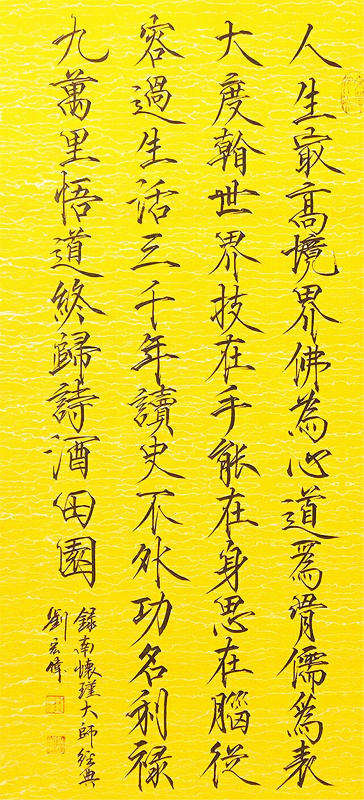 人生最高境界佛為心道為骨儒為表
大度翰世界技在手能在身思在腦從
容過生活三千年讀史不外功名利祿
九萬里悟道終歸詩酒田園
錄南懷瑾大師經典
劉宏偉